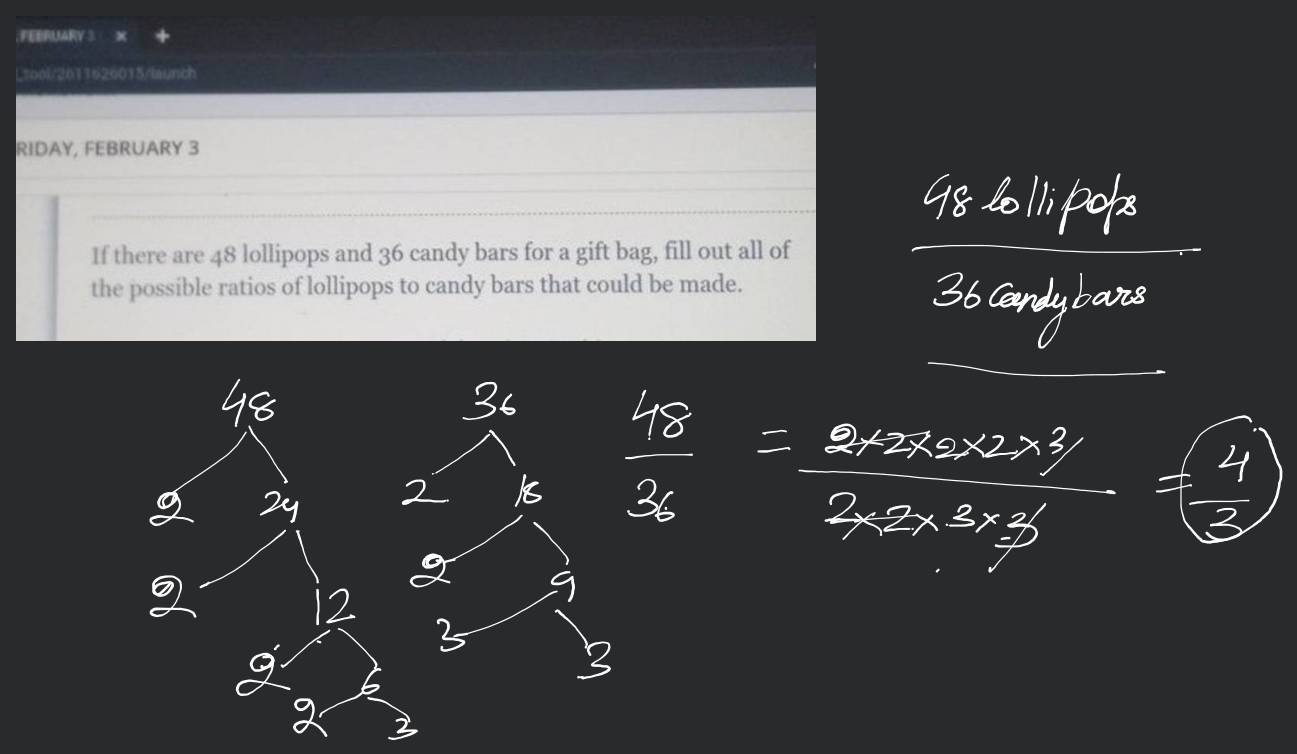 FEBRUARY 3 × +
_tool/2611626015/launch
RIDAY, FEBRUARY 3
If there are 48 lollipops and 36 candy bars for a gift bag, fill out all of
the possible ratios of lollipops to candy bars that could be made.
48 lollipops
36 Candy bars
48
2 24
2 12
2 6
2 3
36
2 18
2 9
3 3
48
36
= 2×2×2×2×3
2×2×3×3
= 4
3